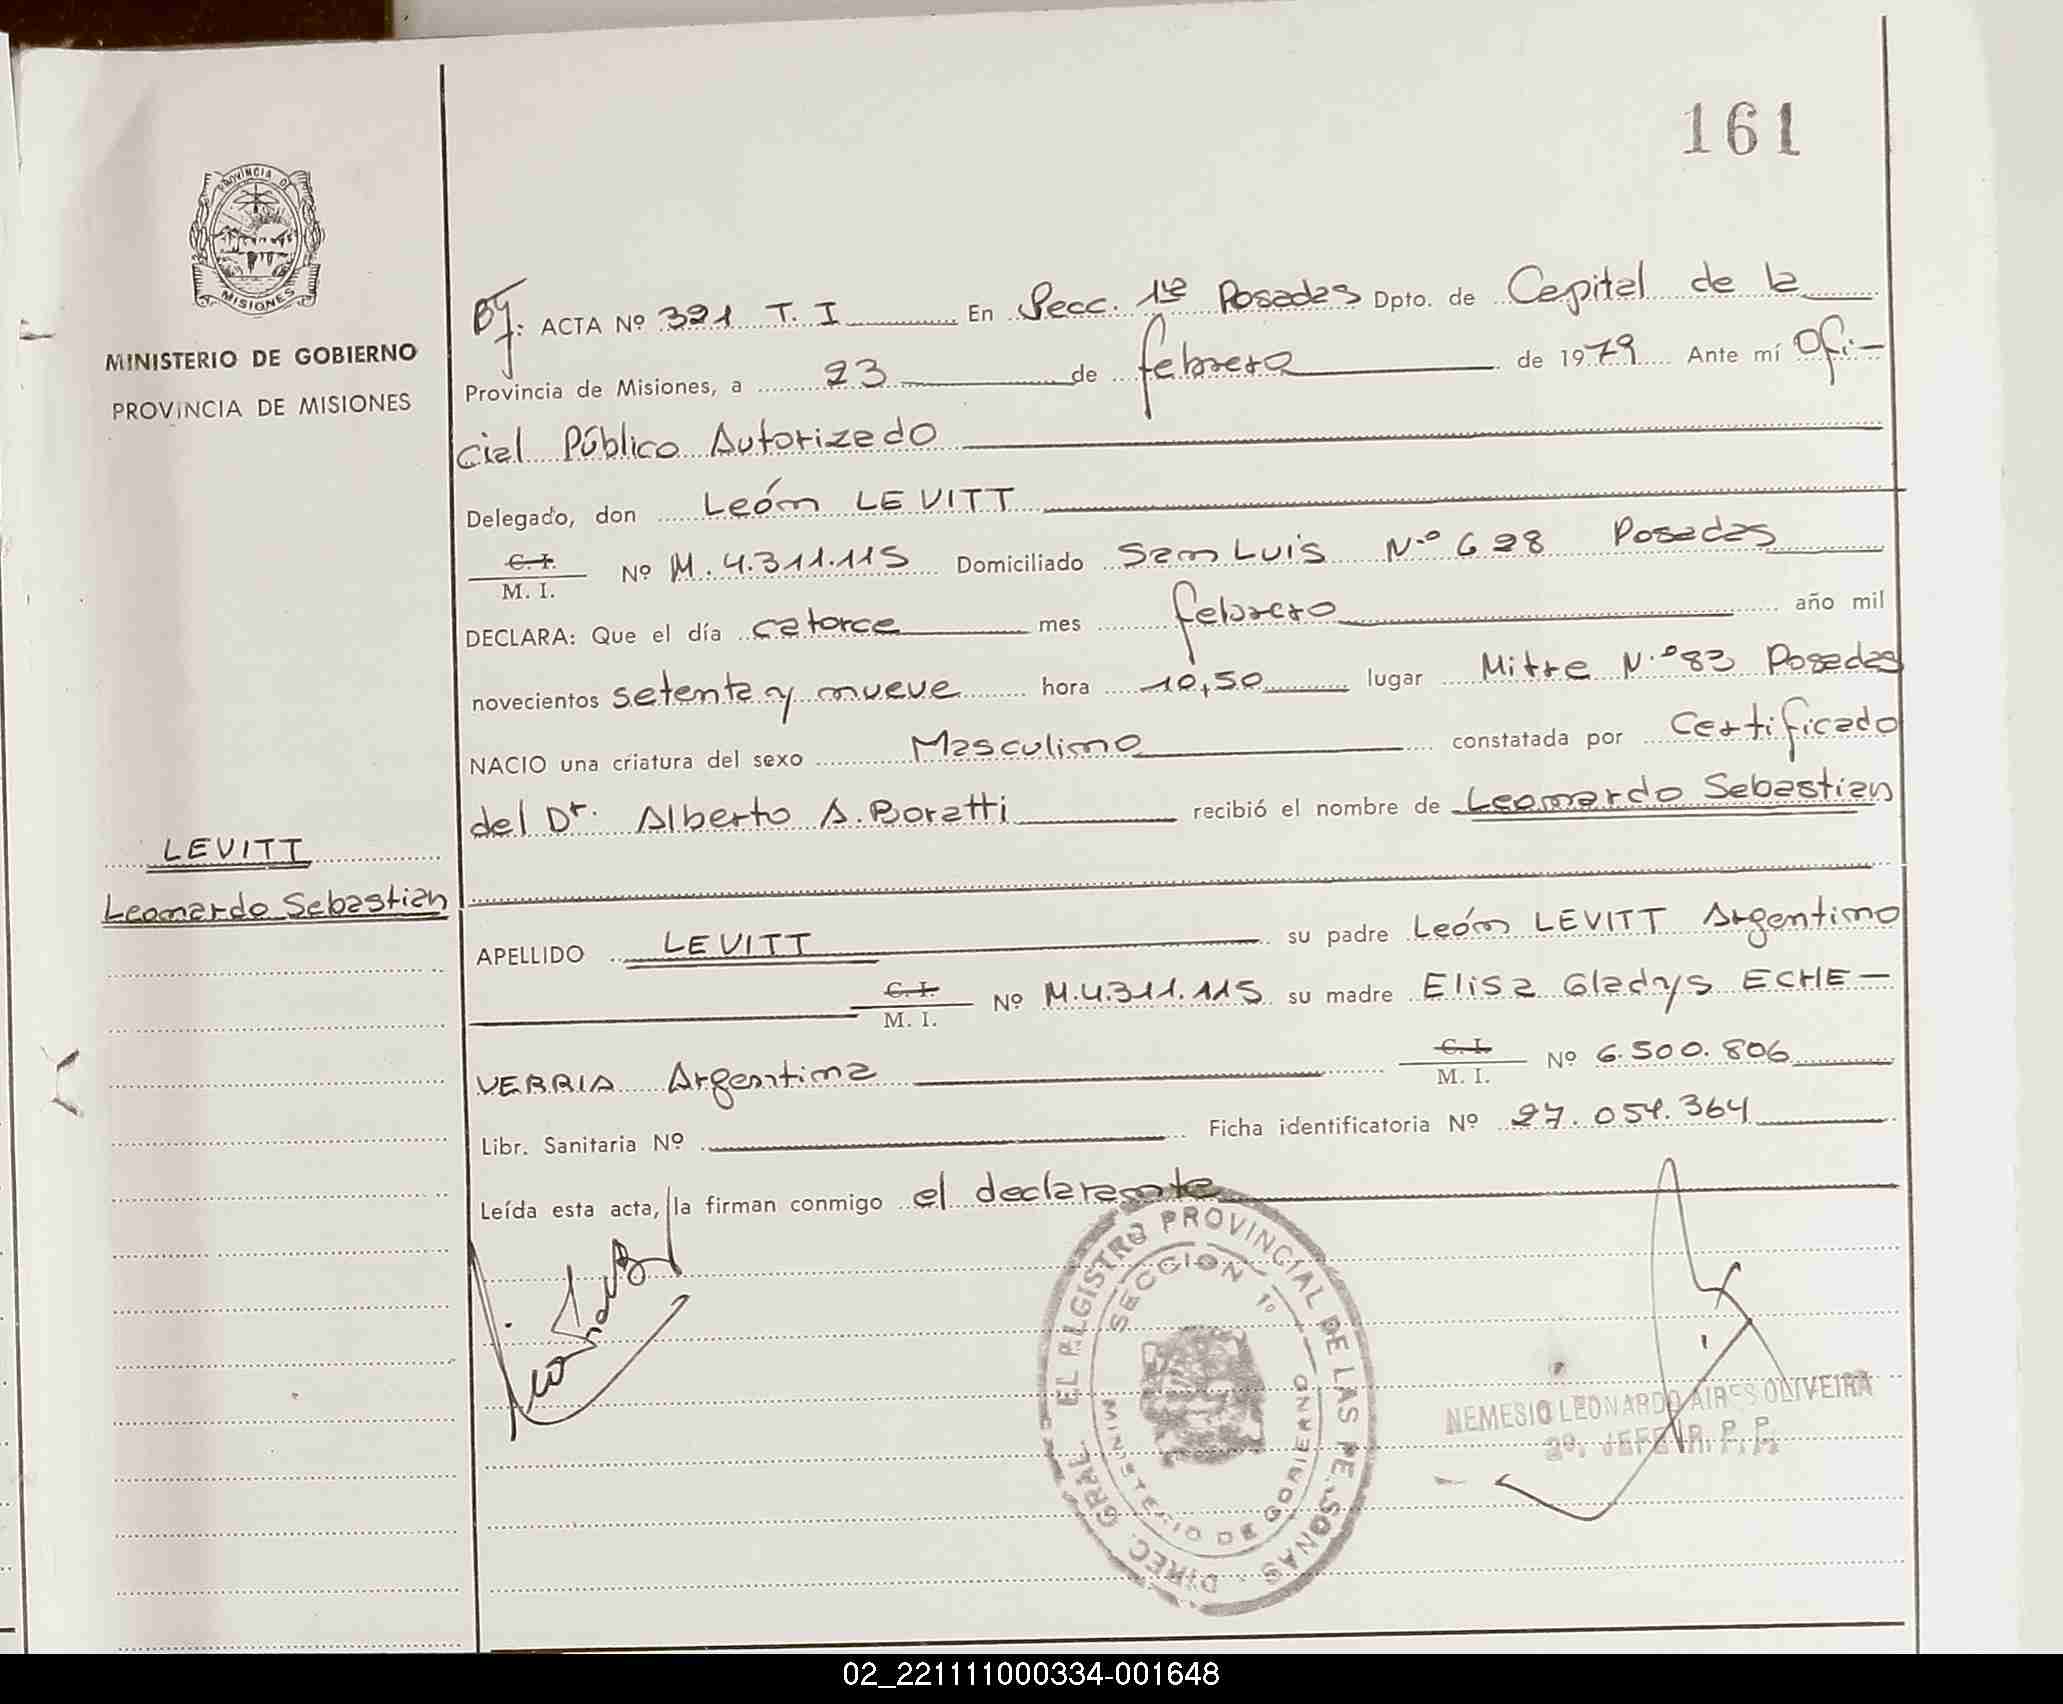 161
PROVINCIA DE
MISIONES
MINISTERIO DE GOBIERNO
PROVINCIA DE MISIONES
LEVITT
Leonardo Sebastian
ACTA Nº 321 T. I En Secc. 1ra Posadas Dpto. de Capital de la
Provincia de Misiones, a 23 de febrero de 1979 Ante mí Ofi-
cial Público Autorizado
Delegado, don León LEVITT
C. I.
M. I. Nº M. 4.311.115 Domiciliado San Luis N.º 628 Posadas
DECLARA: Que el día catorce mes febrero año mil
novecientos setenta y nueve hora 10,50 lugar Mitre N.º 83 Posadas
NACIO una criatura del sexo Masculino constatada por Certificado
del Dr. Alberto A. Boratti recibió el nombre de Leonardo Sebastian
APELLIDO LEVITT su padre León LEVITT Argentino
C. I.
M. I. Nº M.4.311.115 su madre Elisa Gladys ECHE-
VERRIA Argentina C. I.
M. I. Nº 6.500.806
Libr. Sanitaria Nº Ficha identificatoria Nº 27.054.364
Leída esta acta, la firman conmigo el declarante
DIREC. GRAL. EL REGISTRO PROVINCIAL DE LAS PERSONAS
SECCION 1º
MINISTERIO DE GOBIERNO
NEMESIO LEONARDO AIRES OLIVEIRA
2º. JEFE R. P. P.
02_221111000334-001648